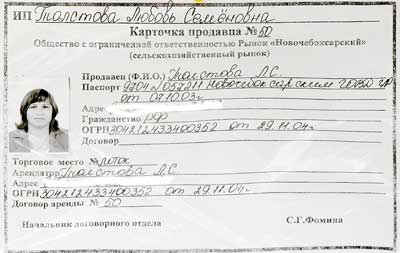 ИП Толстова Любовь Семёновна
Карточка продавца № 50
Общество с ограниченной ответственностью Рынок «Новочебоксарский»
(сельскохозяйственный рынок)
Продавец (Ф.И.О.) Толстова Л С
Паспорт 9704 № 057211 Новочебоксарским ГОВД ЧР
от 07.10.03г.
Адрес
Гражданство РФ
ОГРН 304212433400352 от 29.11.04г.
Договор
Торговое место № лоток
Арендатор Толстова Л С
Адрес
ОГРН 304212433400352 от 29.11.04г.
Договор аренды № 50
Начальник договорного отдела С.Г.Фомина